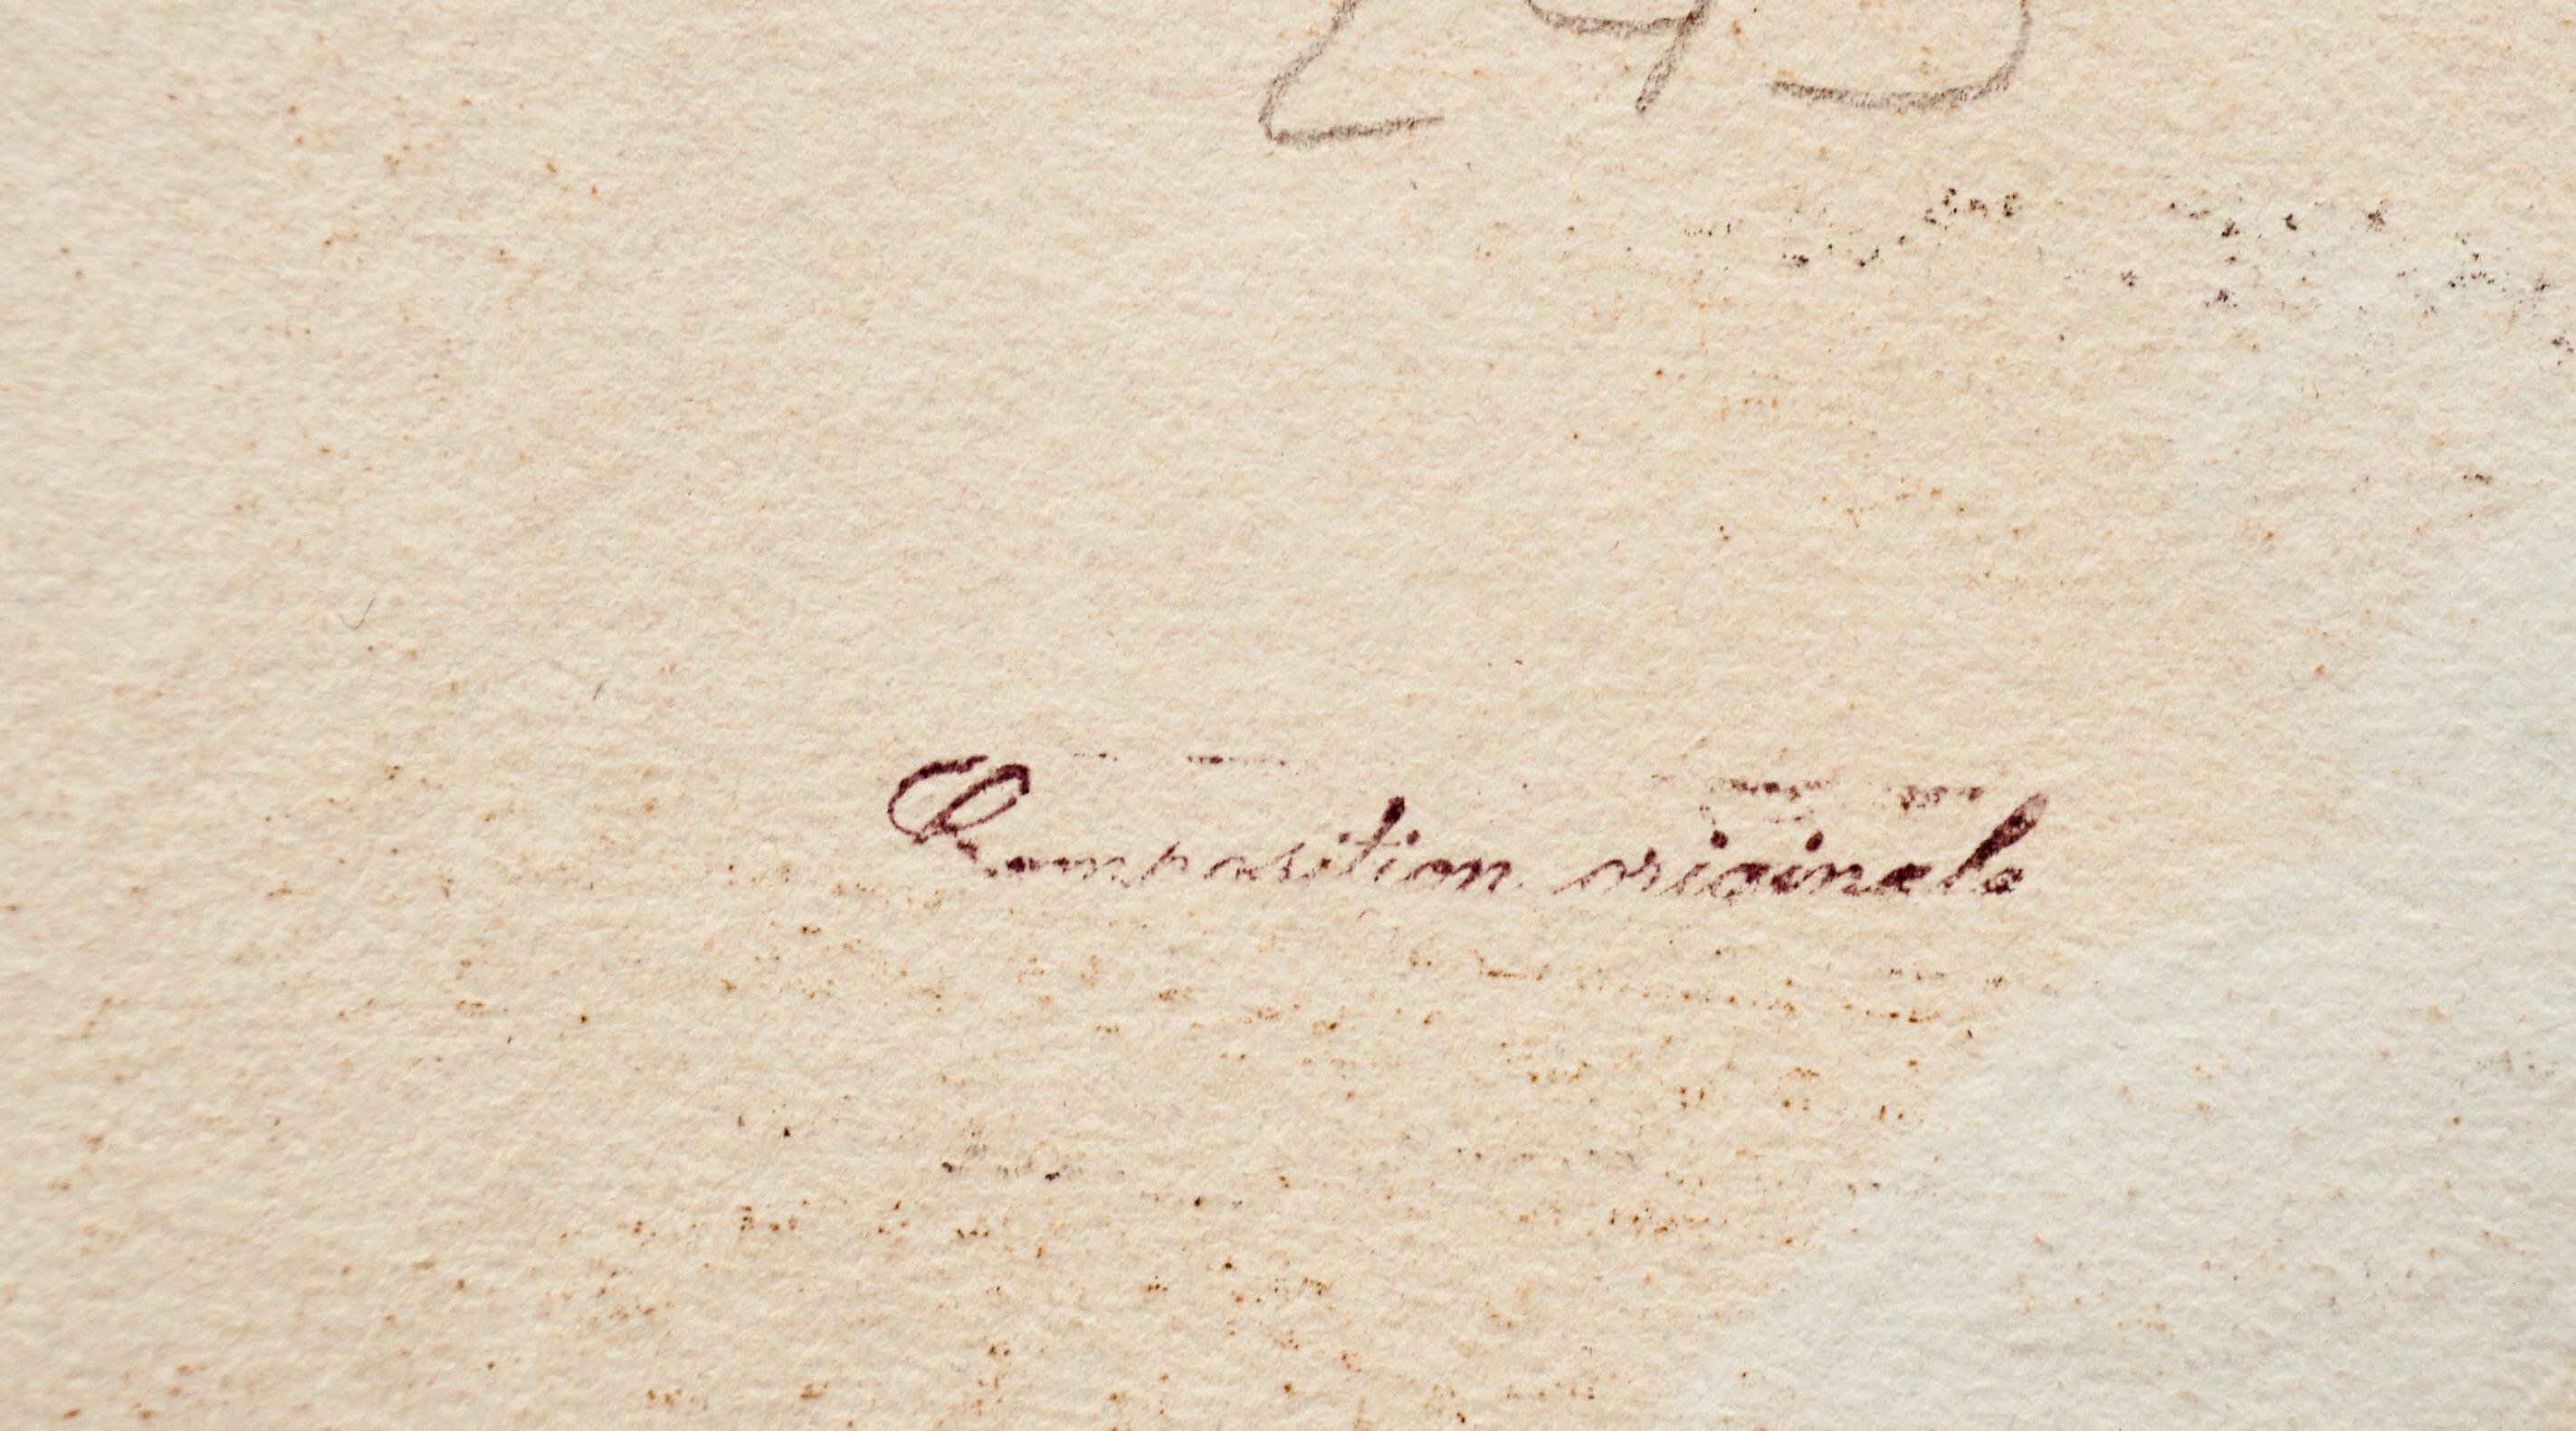 Composition originale